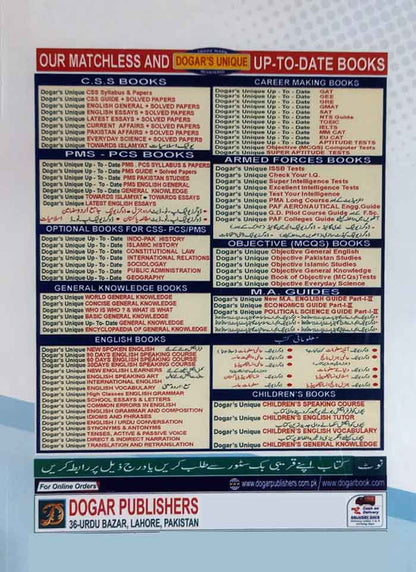 OUR MATCHLESS AND DOGAR'S UNIQUE UP-TO-DATE BOOKS
C.S.S BOOKS
Dogar's Unique CSS Syllabus & Papers
Dogar's Unique CSS GUIDE + SOLVED PAPERS
Dogar's Unique ENGLISH GENERAL + SOLVED PAPERS
Dogar's Unique ENGLISH ESSAY + SOLVED PAPERS
Dogar's Unique LATEST ESSAYS + SOLVED PAPERS
Dogar's Unique CURRENT AFFAIRS + SOLVED PAPERS
Dogar's Unique PAKISTAN AFFAIRS + SOLVED PAPERS
Dogar's Unique EVERYDAY SCIENCE + SOLVED PAPERS
Dogar's Unique TOWARDS ISLAMYAT
PMS - PCS BOOKS
Dogar's Unique Up - To - Date PMS - PCS SYLLABUS & PAPERS
Dogar's Unique Up - To - Date PMS GUIDE + Solved Papers
Dogar's Unique Up - To - Date PMS PAKISTAN STUDIES
Dogar's Unique Up - To - Date PMS ENGLISH GENERAL
Dogar's Unique Up - To - Date GENERAL KNOWLEDGE
Dogar's Unique TOWARDS ISLAMIYAT TOWARDS ESSAYS
Dogar's Unique LATEST ENGLISH ESSAYS
OPTIONAL BOOKS FOR CSS- PCS/PMS
Dogar's Unique Up - To - Date INDO-PAK HISTORY
Dogar's Unique Up - To - Date ISLAMIC HISTORY
Dogar's Unique Up - To - Date CONSTITUTIONAL LAW
Dogar's Unique Up - To - Date INTERNATIONAL RELATIONS
Dogar's Unique Up - To - Date SOCIOLOGY
Dogar's Unique Up - To - Date PUBLIC ADMINISTRATION
Dogar's Unique Up - To - Date GEOGRAPHY
GENERAL KNOWLEDGE BOOKS
Dogar's Unique WORLD GENERAL KNOWLEDGE
Dogar's Unique CONCISE GENERAL KNOWLEDGE
Dogar's Unique WHO IS WHO ? & WHAT IS WHAT
Dogar's Unique BASIC GENERAL KNOWLEDGE
Dogar's Unique Up-To-Date GENERAL KNOWLEDGE
Dogar's Unique ENCYCLOPAEDIA OF GENERAL KNOWLEDGE
ENGLISH BOOKS
Dogar's Unique NEW SPOKEN ENGLISH
Dogar's Unique 90 DAYS ENGLISH SPEAKING COURSE
Dogar's Unique 60 DAYS ENGLISH SPEAKING COURSE
Dogar's Unique 30DAYS ENGLISH SPEAKING COURSE
Dogar's Unique NEW ENGLISH LEARNERS
Dogar's Unique ENGLISH SPEAKING ART
Dogar's Unique INTERNATIONAL ENGLISH
Dogar's Unique ENGLISH VOCABULARY
Dogar's Unique High Classes ENGLISH GRAMMAR
Dogar's Unique SCHOOL ESSAYS & LETTERS
Dogar's Unique COMMON ERRORS IN ENGLISH
Dogar's Unique ENGLISH GRAMMAR AND COMPOSITION
Dogar's Unique IDIOMS AND PHRASES
Dogar's Unique ENGLISH / URDU CONVERSATION
Dogar's Unique SYNONYMS & ANTONYMS
Dogar's Unique TENSES, ACTIVE & PASSIVE VOICE
Dogar's Unique DIRECT & INDIRECT NARRATION
Dogar's Unique TRANSLATION AND RETRANSLATION
CAREER MAKING BOOKS
Dogar's Unique Up - To - Date GAT
Dogar's Unique Up - To - Date GEE
Dogar's Unique Up - To - Date GRE
Dogar's Unique Up - To - Date GMAT
Dogar's Unique Up - To - Date SAT
Dogar's Unique Up - To - Date NTS Guide
Dogar's Unique Up - To - Date TOEIC
Dogar's Unique Up - To - Date IELTS
Dogar's Unique Up - To - Date MM CAT
Dogar's Unique Up - To - Date EU CAT
Dogar's Unique Up - To - Date APTITUDE TESTS
Dogar's Unique Objective (MCQS) Computer Tests
Dogar's Unique SUPER APTITUDE TESTS
ARMED FORCES BOOKS
Dogar's Unique ISSB Tests
Dogar's Unique Check Your I.Q.
Dogar's Unique Super Intelligence Tests
Dogar's Unique Excellent Intelligence Tests
Dogar's Unique Test Your Intelligence
Dogar's Unique PMA Long Course
Dogar's Unique PAF AERONAUTICAL Engg.Guide
Dogar's Unique G.D. Pilot Course Guide F.Sc.
Dogar's Unique PAF Colleges Guide
OBJECTIVE (MCQS) BOOKS
Dogar's Unique Objective General English
Dogar's Unique Objective Pakistan Studies
Dogar's Unique Objective Islamic Studies
Dogar's Unique Objective General Knowledge
Dogar's Unique Book of Objective (MCQs)Tests
Dogar's Unique Objective Everyday Science
M.A. GUIDES
Dogar's Unique New M.A. ENGLISH GUIDE Part-I-II
Dogar's Unique ECONOMICS GUIDE Part-I-II
Dogar's Unique POLITICAL SCIENCE GUIDE Part-I-II
معلوماتی کتب
CHILDREN'S BOOKS
Dogar's Unique CHILDREN'S SPEAKING COURSE
Dogar's Unique CHILDREN'S ENGLISH TUTOR
Dogar's Unique CHILDREN'S ENGLISH VOCABULARY
Dogar's Unique CHILDREN'S GENERAL KNOWLEDGE
نوٹ کتاب اپنے قریبی بک سٹور سے طلب کریں یا درج ذیل پر رابطہ کریں
For Online Orders
www.dogarpublishers.com.pk / www.dogarbook.com
DOGAR PUBLISHERS
36-URDU BAZAR, LAHORE, PAKISTAN
Cash on
Delivery